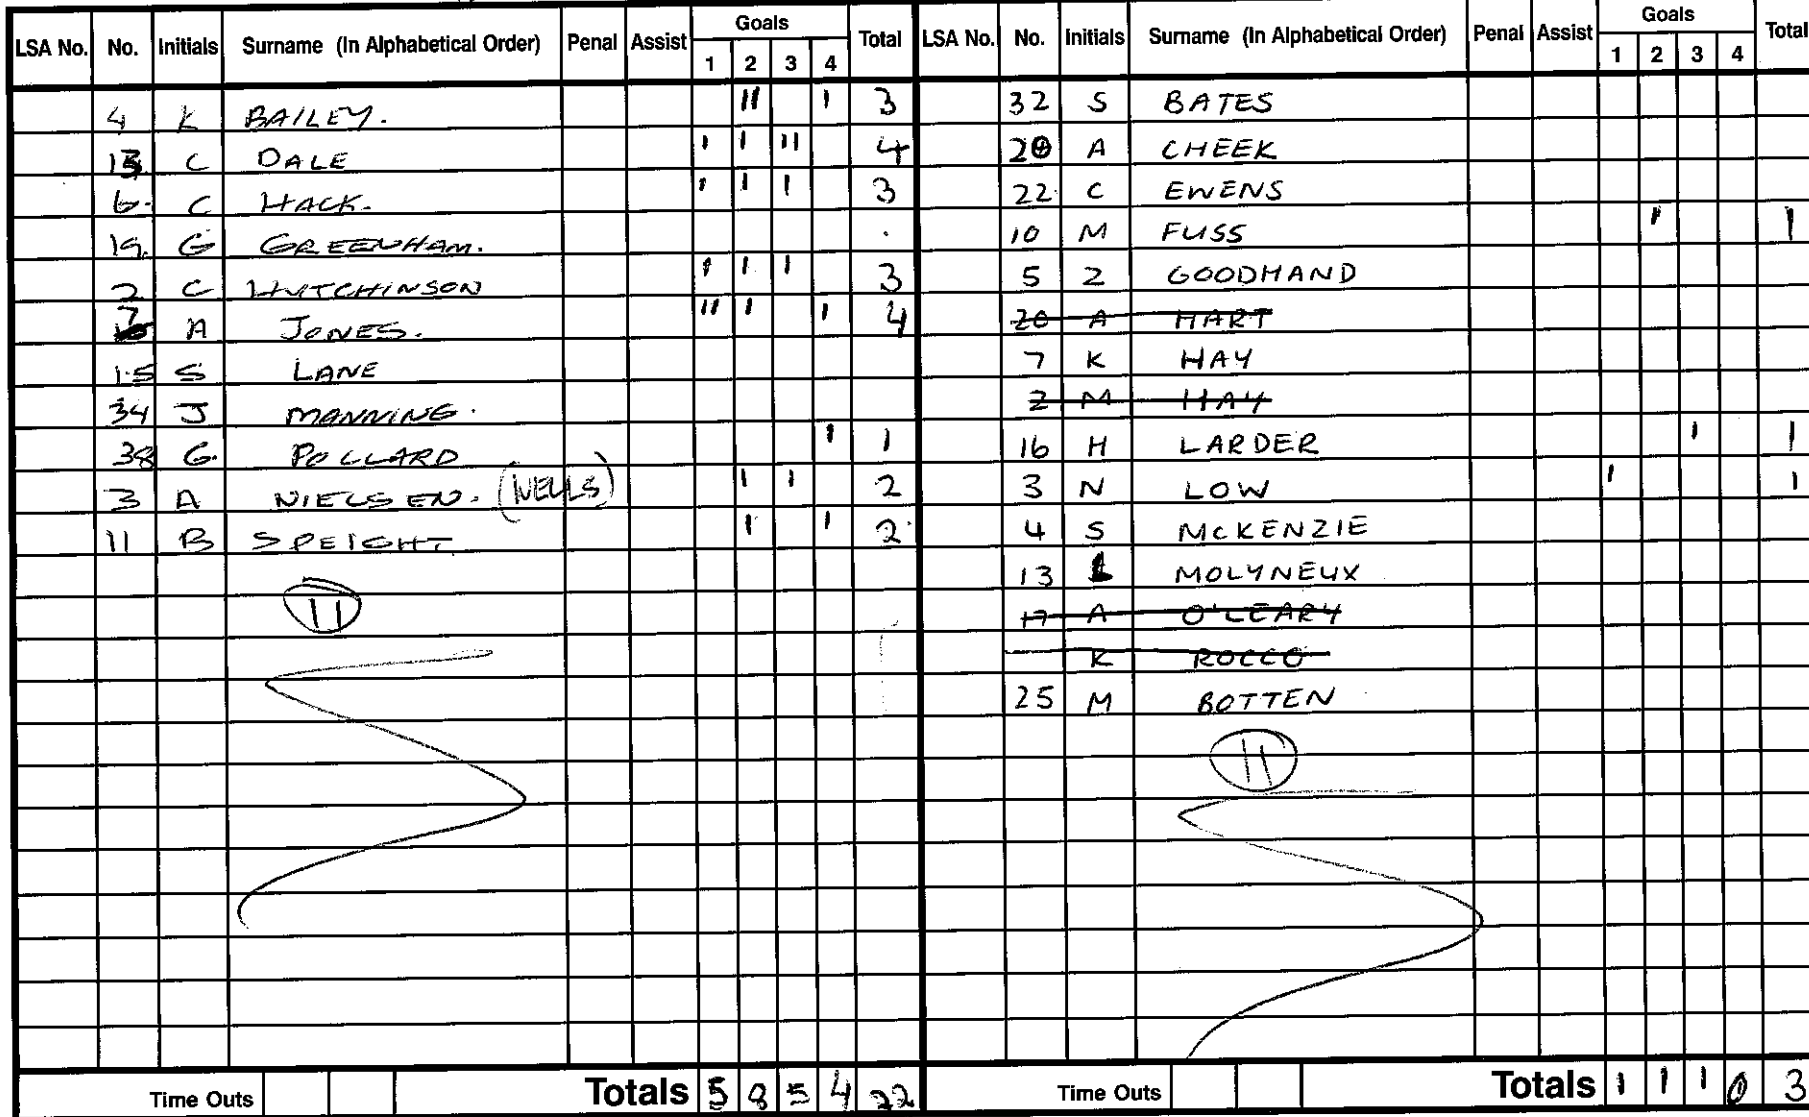 LSA No. No. Initials Surname (In Alphabetical Order) Penal Assist Goals 1 2 3 4 Total
4 K BAILEY. 11 1 3
13 C DALE 1 1 11 4
6. C HACK. 1 1 1 3
19. G GREENHAM.
2 C HUTCHINSON 1 1 1 3
7 A JONES. 11 1 1 4
15 S LANE
34 J MANNING.
38 G. POLLARD 1 1
3 A NIELSEN. (WELLS) 1 1 2
11 B SPEIGHT 1 1 2
11
Time Outs Totals 5 8 5 4 22
LSA No. No. Initials Surname (In Alphabetical Order) Penal Assist Goals 1 2 3 4 Total
32 S BATES
20 A CHEEK
22 C EWENS
10 M FUSS 1 1
5 Z GOODHAND
20 A HART
7 K HAY
2 M HAY
16 H LARDER 1 1
3 N LOW 1 1
4 S MCKENZIE
13 L MOLYNEUX
17 A O'LEARY
K ROCCO
25 M BOTTEN
11
Time Outs Totals 1 1 1 0 3